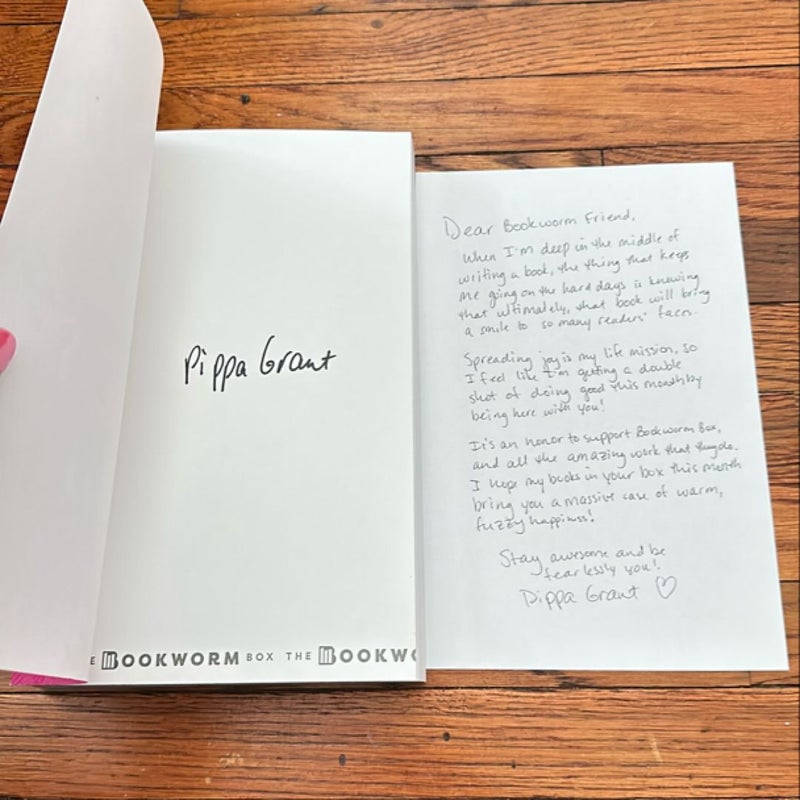 Pippa Grant
E BOOKWORM BOX THE BOOKWO
Dear Bookworm Friend,
When I'm deep in the middle of
writing a book, the thing that keeps
me going on the hard days is knowing
that ultimately, that book will bring
a smile to so many readers' faces.
Spreading joy is my life mission, so
I feel like I'm getting a double
shot of doing good this month by
being here with you!
It's an honor to support Bookworm Box,
and all the amazing work that they do.
I hope my books in your box this month
bring you a massive case of warm,
fuzzy happiness!
Stay awesome and be
fearlessly you!
Pippa Grant ♡